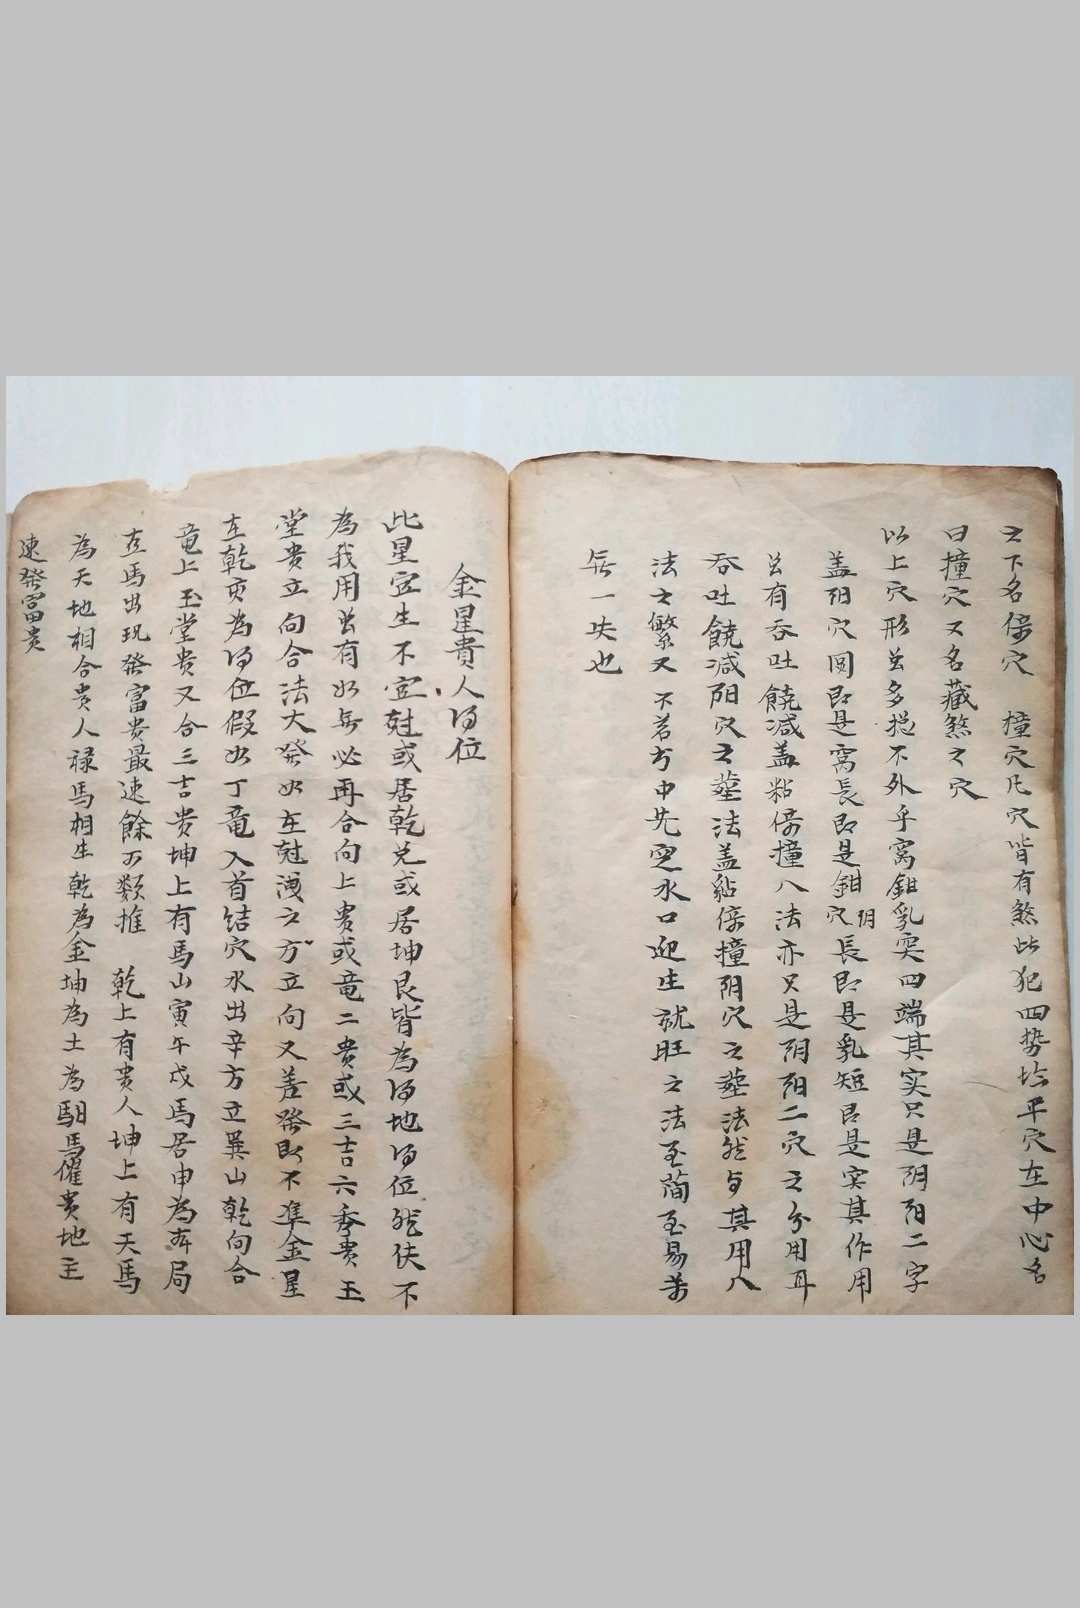 之下名倚穴　撞穴凡穴皆有煞此犯四势坮平穴在中心名
曰撞穴又名藏煞之穴
以上穴形虽多揔不外乎窝鉗乳突四端其实只是阴阳二字
盖阳穴圆即是窝長即是鉗阴穴長即是乳短即是突其作用
虽有吞吐饒减盖粘倚撞八法亦只是阴阳二穴之分用耳
吞吐饒减阳穴之塟法盖粘倚撞阴穴之塟法然与其用八
法之繁又不若于中先定水口迎生就旺之法至简至易万
無一失也
金星貴人得位
此星宜生不宜尅或居乾兑或居坤艮皆為得地得位然伏不
為我用虽有如無必再合向上贵或竜二贵或三吉六秀贵玉
堂贵立向合法大發如在尅洩之方立向又差發即不準金星
在乾亥為得位假如丁竜入首结穴水出辛方立巽山乾向合
竜上玉堂贵又合三吉贵坤上有馬山寅午戌馬居申為本局
真馬出現發富贵最速餘可類推　乾上有贵人坤上有天馬
為天地相合贵人禄馬相生乾為金坤為土為馹馬催贵地主
速發富贵